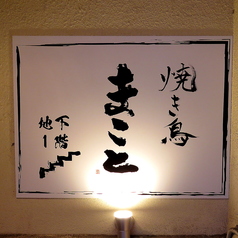 焼き鳥
まこと
下階
地1